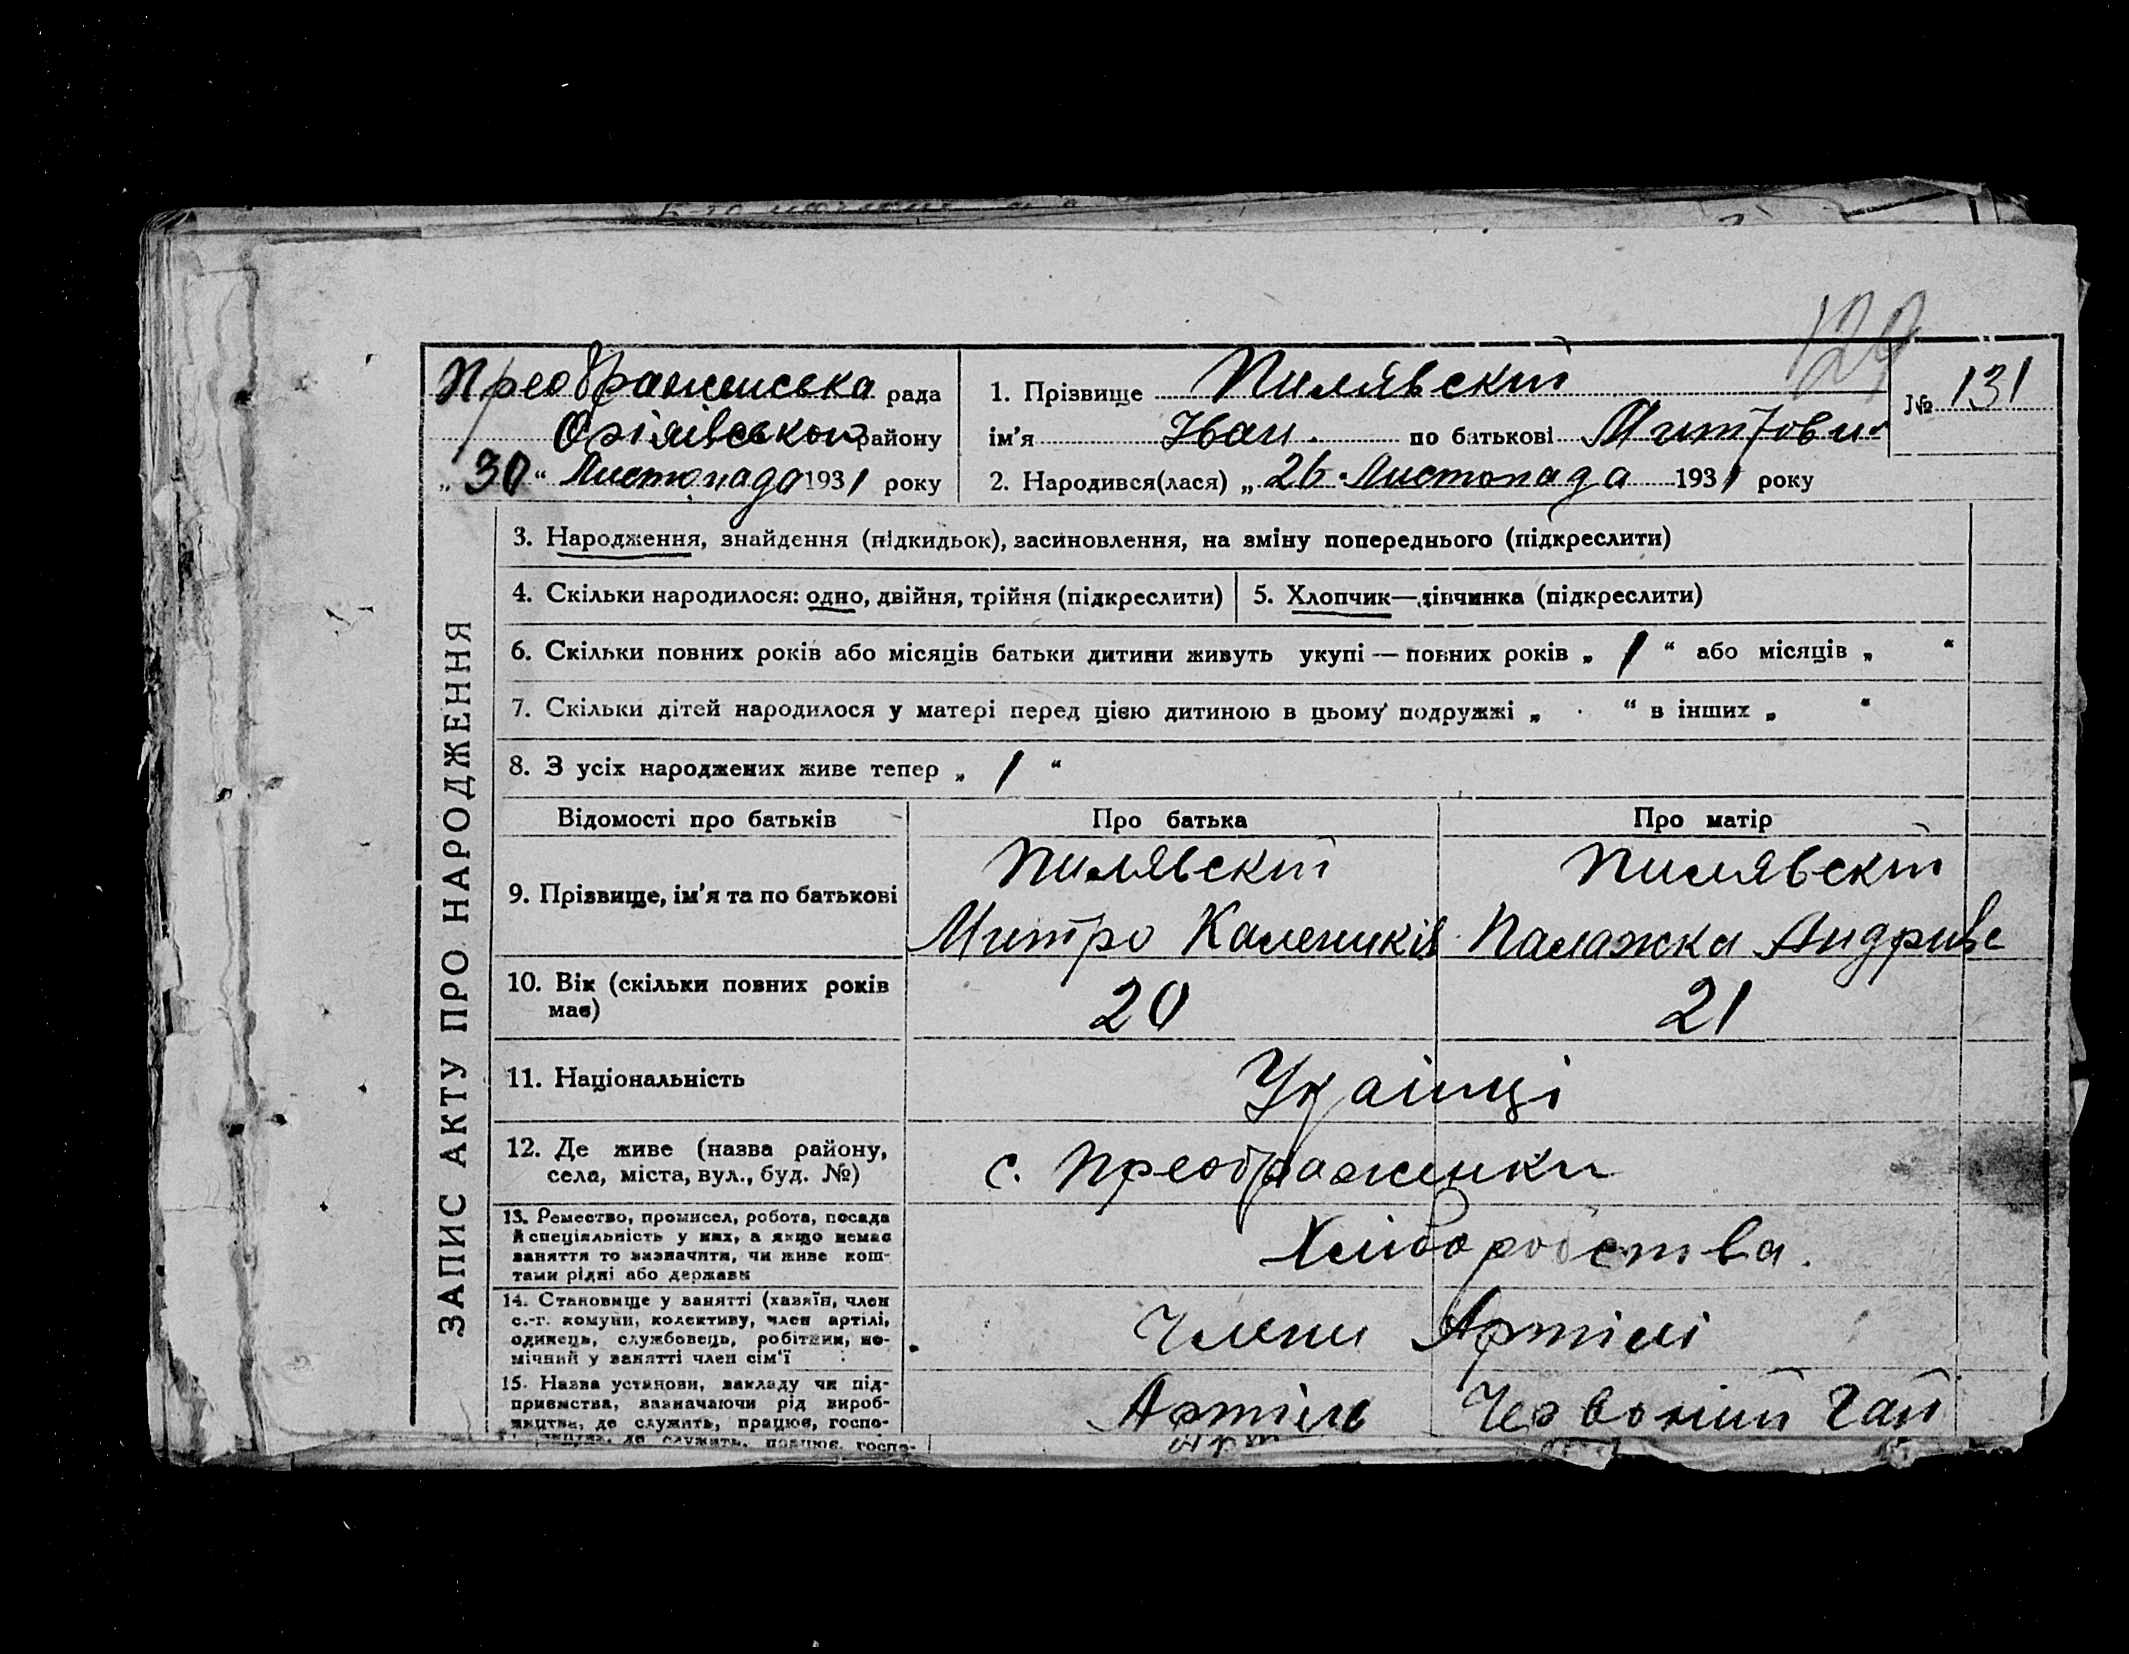 129
Преображенська рада
Оріхівського району
„ 30 “ Листопада 1931 року
1. Прізвище Пилявский
ім’я Іван. по батькові Митрович
№ 131
2. Народився(лася) „ 26 Листопада 1931 року
ЗАПИС АКТУ ПРО НАРОДЖЕННЯ
3. Народження, знайдення (підкидьок), засиновлення, на зміну попереднього (підкреслити)
4. Скільки народилося: одно, двійня, трійня (підкреслити)
5. Хлопчик—дівчинка (підкреслити)
6. Скільки повних років або місяців батьки дитини живуть укупі — повних років „ 1 “ або місяців „ “
7. Скільки дітей народилося у матері перед цією дитиною в цьому подружжі „ “ в інших „ “
8. З усіх народжених живе тепер „ 1 “
Відомості про батьків Про батька Про матір
9. Прізвище, ім’я та по батькові
Пилявский
Митро Калеників
Пилявский
Палажка Андривс
10. Вік (скільки повних років
має)
20 21
11. Національність
Українці
12. Де живе (назва району,
села, міста, вул., буд. №)
с. Преображенки
13. Ремество, промисел, робота, посада
й спеціяльність у них, а якщо немає
заняття то зазначити, чи живе кош-
тами рідні або держави
Хліборобства.
14. Становище у занятті (хазяїн, член
с.-г. комуни, колективу, член артілі,
одинець, службовець, робітник, по-
мічний у занятті член сім’ї
Члени Артілі
15. Назва установи, закладу чи під-
приємства, зазначаючи рід вироб-
ництва, де служить, працює, госпо-
Артіль Червоний Гай
ництва, де служить, працює, госпо-